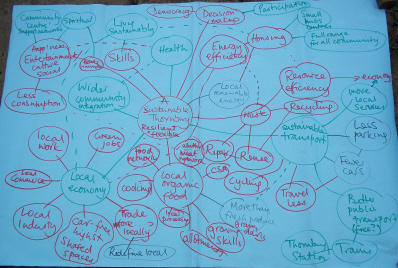 Community
Centre/
Spiritual
Living
Sustainably
Democracy
Decision
making
Participation
Small
Full range
for all community
Housing
Energy
efficiency
Health
Happiness
Entertainment
culture
social
Skills
Less
Consumption
Wider
Community
integration
Local renewable
energy
Resource
efficiency
Recycling
more
local
services
A
Sustainable
Thornbury
Resilient
flexible
Waste
Repair
Reuse
CSA
Cycling
sustainable
transport
Less
parking
Fewer
cars
Travel
Less
Better
public
transport
(free?)
Thornbury
Station
Train
Local
work
Green
jobs
Food
network
Less
commerce
Local
economy
cooking
Local
organic
food
More
fresh produce
grow
skills
allotments
Local
Industry
Car-free
highst
Shared
spaces
Trade
more
locally
Redefine local